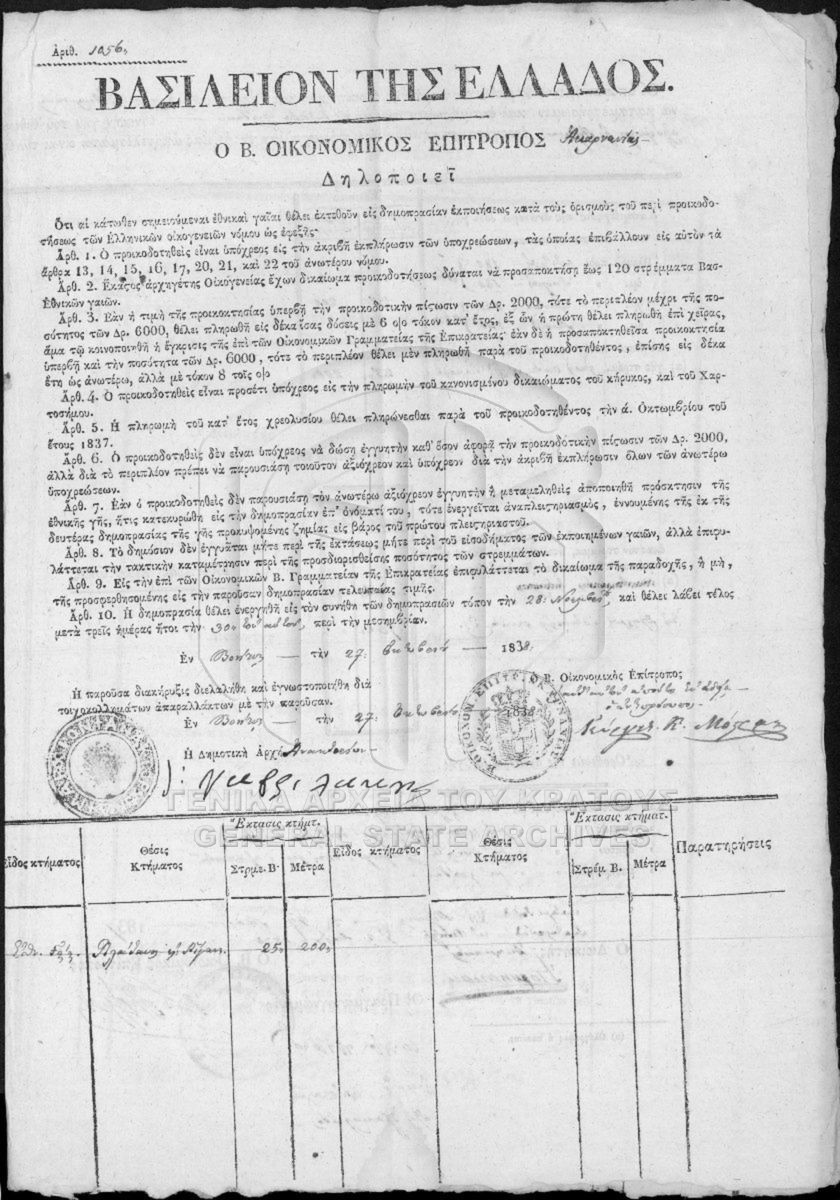 Ἀριθ. 1056,
ΒΑΣΙΛΕΙΟΝ ΤΗΣ ΕΛΛΑΔΟΣ.
Ο Β. ΟΙΚΟΝΟΜΙΚΟΣ ΕΠΙΤΡΟΠΟΣ Ακαρνανίας
Δηλοποιεῖ
Ὅτι αἱ κάτωθεν σημειούμεναι ἐθνικαὶ γαῖαι θέλει ἐκτεθοῦν εἰς δημοπρασίαν ἐκποιήσεως κατὰ τοὺς ὁρισμοὺς τοῦ περὶ προικοδο-
τήσεως τῶν Ἑλληνικῶν οἰκογενειῶν νόμου ὡς ἐφεξῆς·
Ἄρθ. 1. Ὁ προικοδοτηθεὶς εἶναι ὑπόχρεος εἰς τὴν ἀκριβῆ ἐκπλήρωσιν τῶν ὑποχρεώσεων, τὰς ὁποίας ἐπιβάλλουν εἰς αὐτὸν τὰ
ἄρθρα 13, 14, 15, 16, 17, 20, 21, καὶ 22 τοῦ ἀνωτέρω νόμου.
Ἄρθ. 2. Ἕκαςος ἀρχηγέτης Οἰκογενείας ἔχων δικαίωμα προικοδοτήσεως δύναται νὰ προσαποκτήσῃ ἕως 120 στρέμματα Βασ-
Ἐθνικῶν γαιῶν.
Ἄρθ. 3. Ἐὰν ἡ τιμὴ τῆς προικοκτησίας ὑπερβῇ τὴν προικοδοτικὴν πίςωσιν τῶν Δρ. 2000, τότε τὸ περιπλέον μέχρι τῆς πο-
σότητος τῶν Δρ. 6000, θέλει πληρωθῆ εἰς δέκα ἴσας δόσεις μὲ 6 ο)ο τόκον κατ' ἔτος, ἐξ ὧν ἡ πρώτη θέλει πληρωθῆ ἐπὶ χεῖρας,
ἅμα τῷ κοινοποιηθῇ ἡ ἔγκρισις τῆς ἐπὶ τῶν Οἰκονομικῶν Γραμματείας τῆς Ἐπικρατείας· ἐὰν δὲ ἡ προσαποκτηθεῖσα προικοκτησία
ὑπερβῇ καὶ τὴν ποσότητα τῶν Δρ. 6000, τότε τὸ περιπλέον θέλει μὲν πληρωθῆ παρὰ τοῦ προικοδοτηθέντος, ἐπίσης εἰς δέκα
ἔτη ὡς ἀνωτέρω, ἀλλὰ μὲ τόκον 8 τοῖς ο)ο
Ἄρθ. 4. Ὁ προικοδοτηθεὶς εἶναι προσέτι ὑπόχρεος εἰς τὴν πληρωμὴν τοῦ κανονισμένου δικαιώματος τοῦ κήρυκος, καὶ τοῦ Χαρ-
τοσήμου.
Ἄρθ. 5. Ἡ πληρωμὴ τοῦ κατ' ἔτος χρεολυσίου θέλει πληρώνεσθαι παρὰ τοῦ προικοδοτηθέντος τὴν ά. Ὀκτωμβρίου τοῦ
ἔτους 1837.
Ἄρθ. 6. Ὁ προικοδοτηθεὶς δὲν εἶναι ὑπόχρεος νὰ δώσῃ ἐγγυητὴν καθ' ὅσον ἀφορᾷ τὴν προικοδοτικὴν πίςωσιν τῶν Δρ. 2000,
ἀλλὰ διὰ τὸ περιπλέον πρέπει νὰ παρουσιάσῃ τοιοῦτον ἀξιόχρεον καὶ ὑπόχρεον διὰ τὴν ἀκριβῆ ἐκπλήρωσιν ὅλων τῶν ἀνωτέρω
ὑποχρεώσεων.
Ἄρθ. 7. Ἐὰν ὁ προικοδοτηθεὶς δὲν παρουσιάσῃ τὸν ἀνωτέρω ἀξιόχρεον ἐγγυητὴν ἢ μεταμεληθεὶς ἀποποιηθῇ πρόσκτησιν τῆς
ἐθνικῆς γῆς, ἥτις κατεκυρώθη εἰς τὴν δημοπρασίαν ἐπ' ὀνόματί του, τότε ἐνεργεῖται ἀναπλειςηριασμὸς, ἐννουμένης τῆς ἐκ τῆς
δευτέρας δημοπρασίας τῆς γῆς προκυψομένης ζημίας εἰς βάρος τοῦ πρώτου πλειςηριαστοῦ.
Ἄρθ. 8. Τὸ δημόσιον δὲν ἐγγυᾶται μήτε περὶ τῆς ἐκτάσεως μήτε περὶ τοῦ εἰσοδήματος τῶν ἐκποιημένων γαιῶν, ἀλλὰ ἐπιφυ-
λάττεται τὴν τακτικὴν καταμέτρησιν περὶ τῆς προσδιορισθείσης ποσότητος τῶν στρεμμάτων.
Ἄρθ. 9. Εἰς τὴν ἐπὶ τῶν Οἰκονομικῶν Β. Γραμματείαν τῆς Ἐπικρατείας ἐπιφυλάττεται τὸ δικαίωμα τῆς παραδοχῆς, ἢ μὴ,
τῆς προσφερθησομένης εἰς τὴν παροῦσαν δημοπρασίαν τελευταίας τιμῆς.
Ἄρθ. 10. Ἡ δημοπρασία θέλει ἐνεργηθῆ εἰς τὸν συνήθη τῶν δημοπρασιῶν τύπον τὴν 28: Νοεμβρ καὶ θέλει λάβει τέλος
μετὰ τρεῖς ἡμέρας ἤτοι τὴν 30ην τοῦ αὐτοῦ, περὶ τὴν μεσημβρίαν.
Ἐν Βονίτζῃ τὴν 27: Ὀκτωβρίου 1838.
Β. Οἰκονομικὸς Ἐπίτροπος
Ἡ παροῦσα διακήρυξις διελαλήθη καὶ ἐγνωστοποιήθη διὰ
τοιχοκολλημάτων ἀπαραλλάκτων μὲ τὴν παροῦσαν.
Ἐν Βονίτζῃ τὴν 27: Ὀκτωβρίου 1838
Ἡ Δημοτικὴ Ἀρχὴ Ἀνακτορίου
ΓΕΝΙΚΑ ΑΡΧΕΙΑ ΤΟΥ ΚΡΑΤΟΥΣ
GENERAL STATE ARCHIVES
Εἶδος κτήματος Θέσις Κτήματος Ἔκτασις κτήματ. Στρμε. Β· Μέτρα Εἶδος κτήματος Θέσις Κτήματος Ἔκτασις κτήματ. Στρέμ Β. Μέτρα Παρατηρήσεις
Ἐθν. 25, 200,